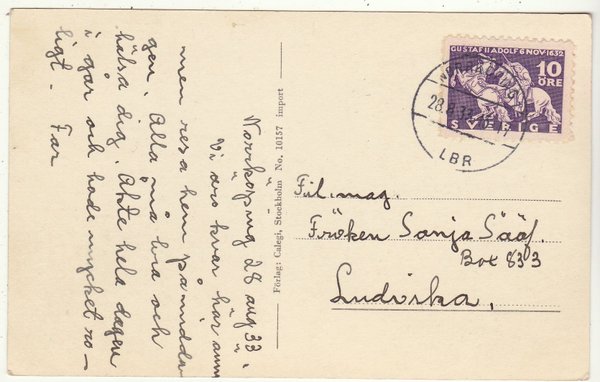 Norrköping 28 aug 33.
Vi äro kvar här ännu
men resa hem på midda-
gen. Alla må bra och
hälsa dig. Åkte hela dagen
i går och hade mycket ro-
ligt. Far
Förlag: Calegi, Stockholm No. 10157 import
GUSTAF II ADOLF 6 NOV 1632
10
ÖRE
SVERIGE
NORRKÖPING
LBR
Fil. mag.
Fröken Sonja Sääf.
Box 833
Ludvika,